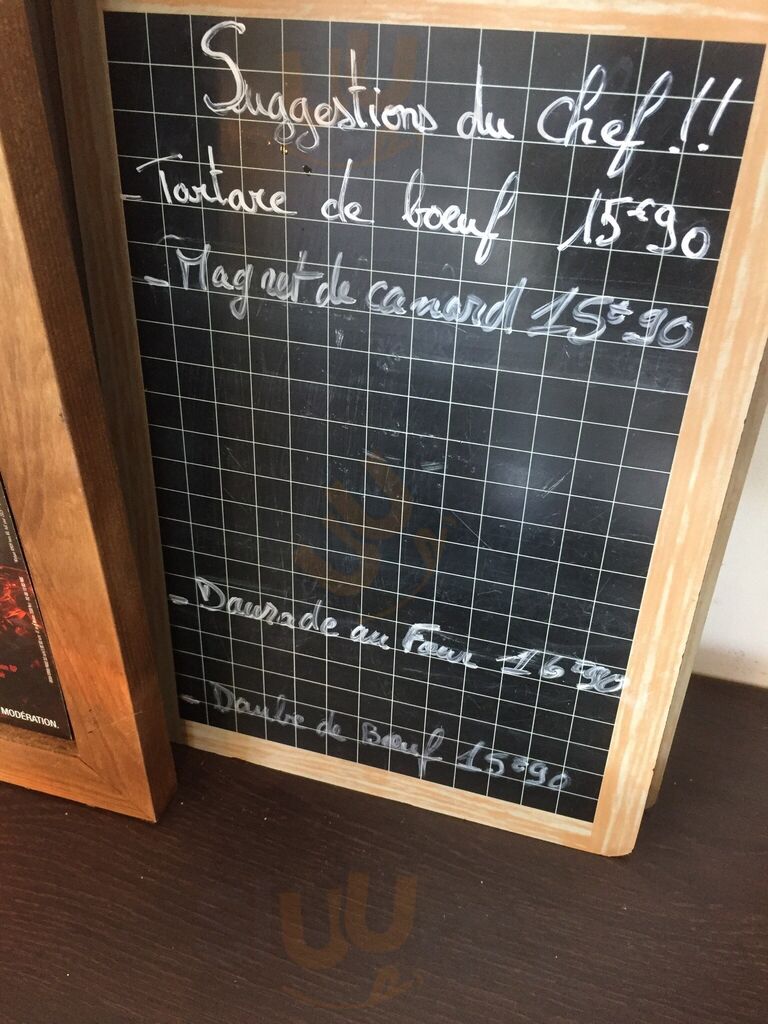 Suggestions du Chef !!
- Tartare de boeuf 15€90
- Magret de canard 15€90
- Daurade au Four 16€90
- Daube de Bœuf 15€90
MODÉRATION.